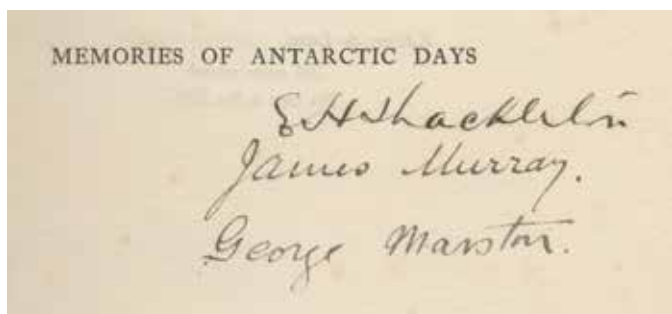 MEMORIES OF ANTARCTIC DAYS
E H Shackleton
James Murray.
George Marston.